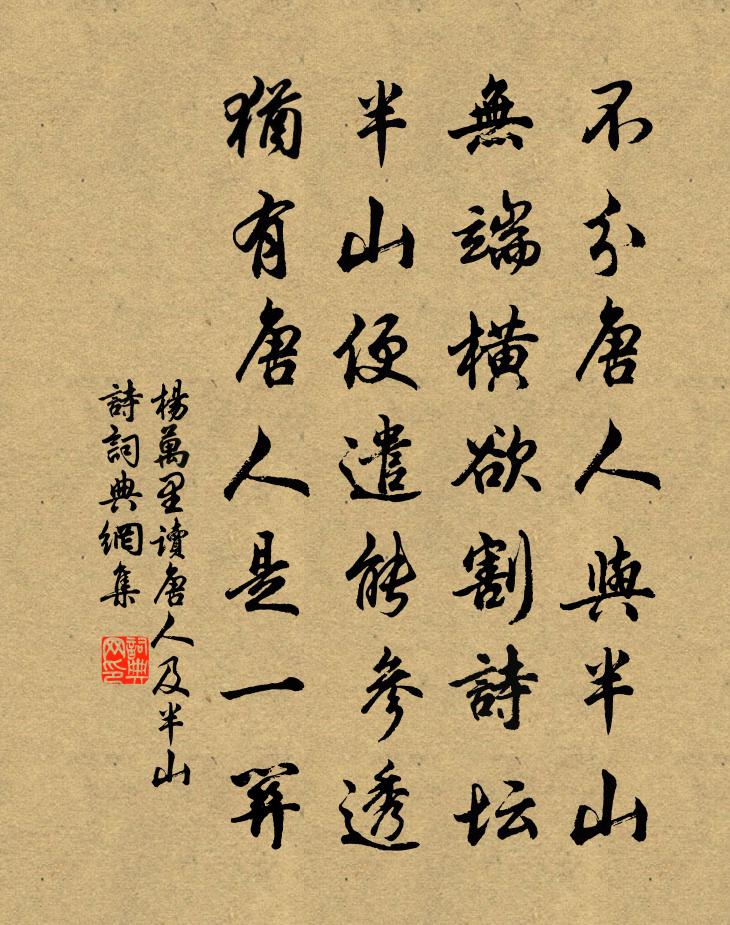 不分唐人與半山
無端橫欲割詩坛
半山便遣能參透
猶有唐人是一關
楊萬里讀唐人及半山
詩詞典網集
詞典网印